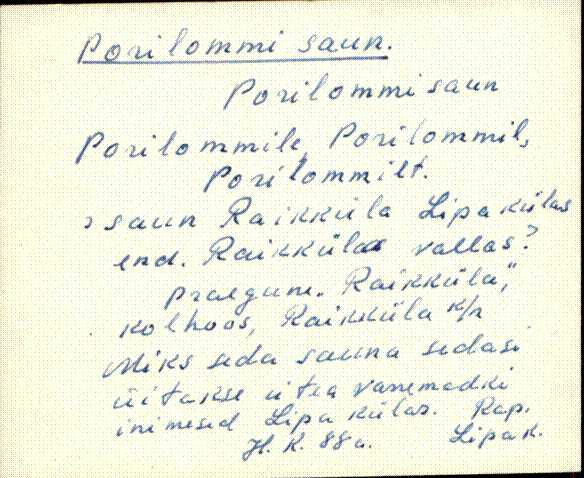 Porilommi saun.
Porilommi saun
Porilommile, Porilommil,
Porilommilt.
saun Raikküla Lipa külas
end. Raikkülas vallas?
praegune. Raikküla,"
kolhoos, Raikküla k/n
Miks seda sauna sedasi
üitakse ei tea vanemadki
inimesed Lipa külas. Rap.
H. K. 88a. Lipa k.